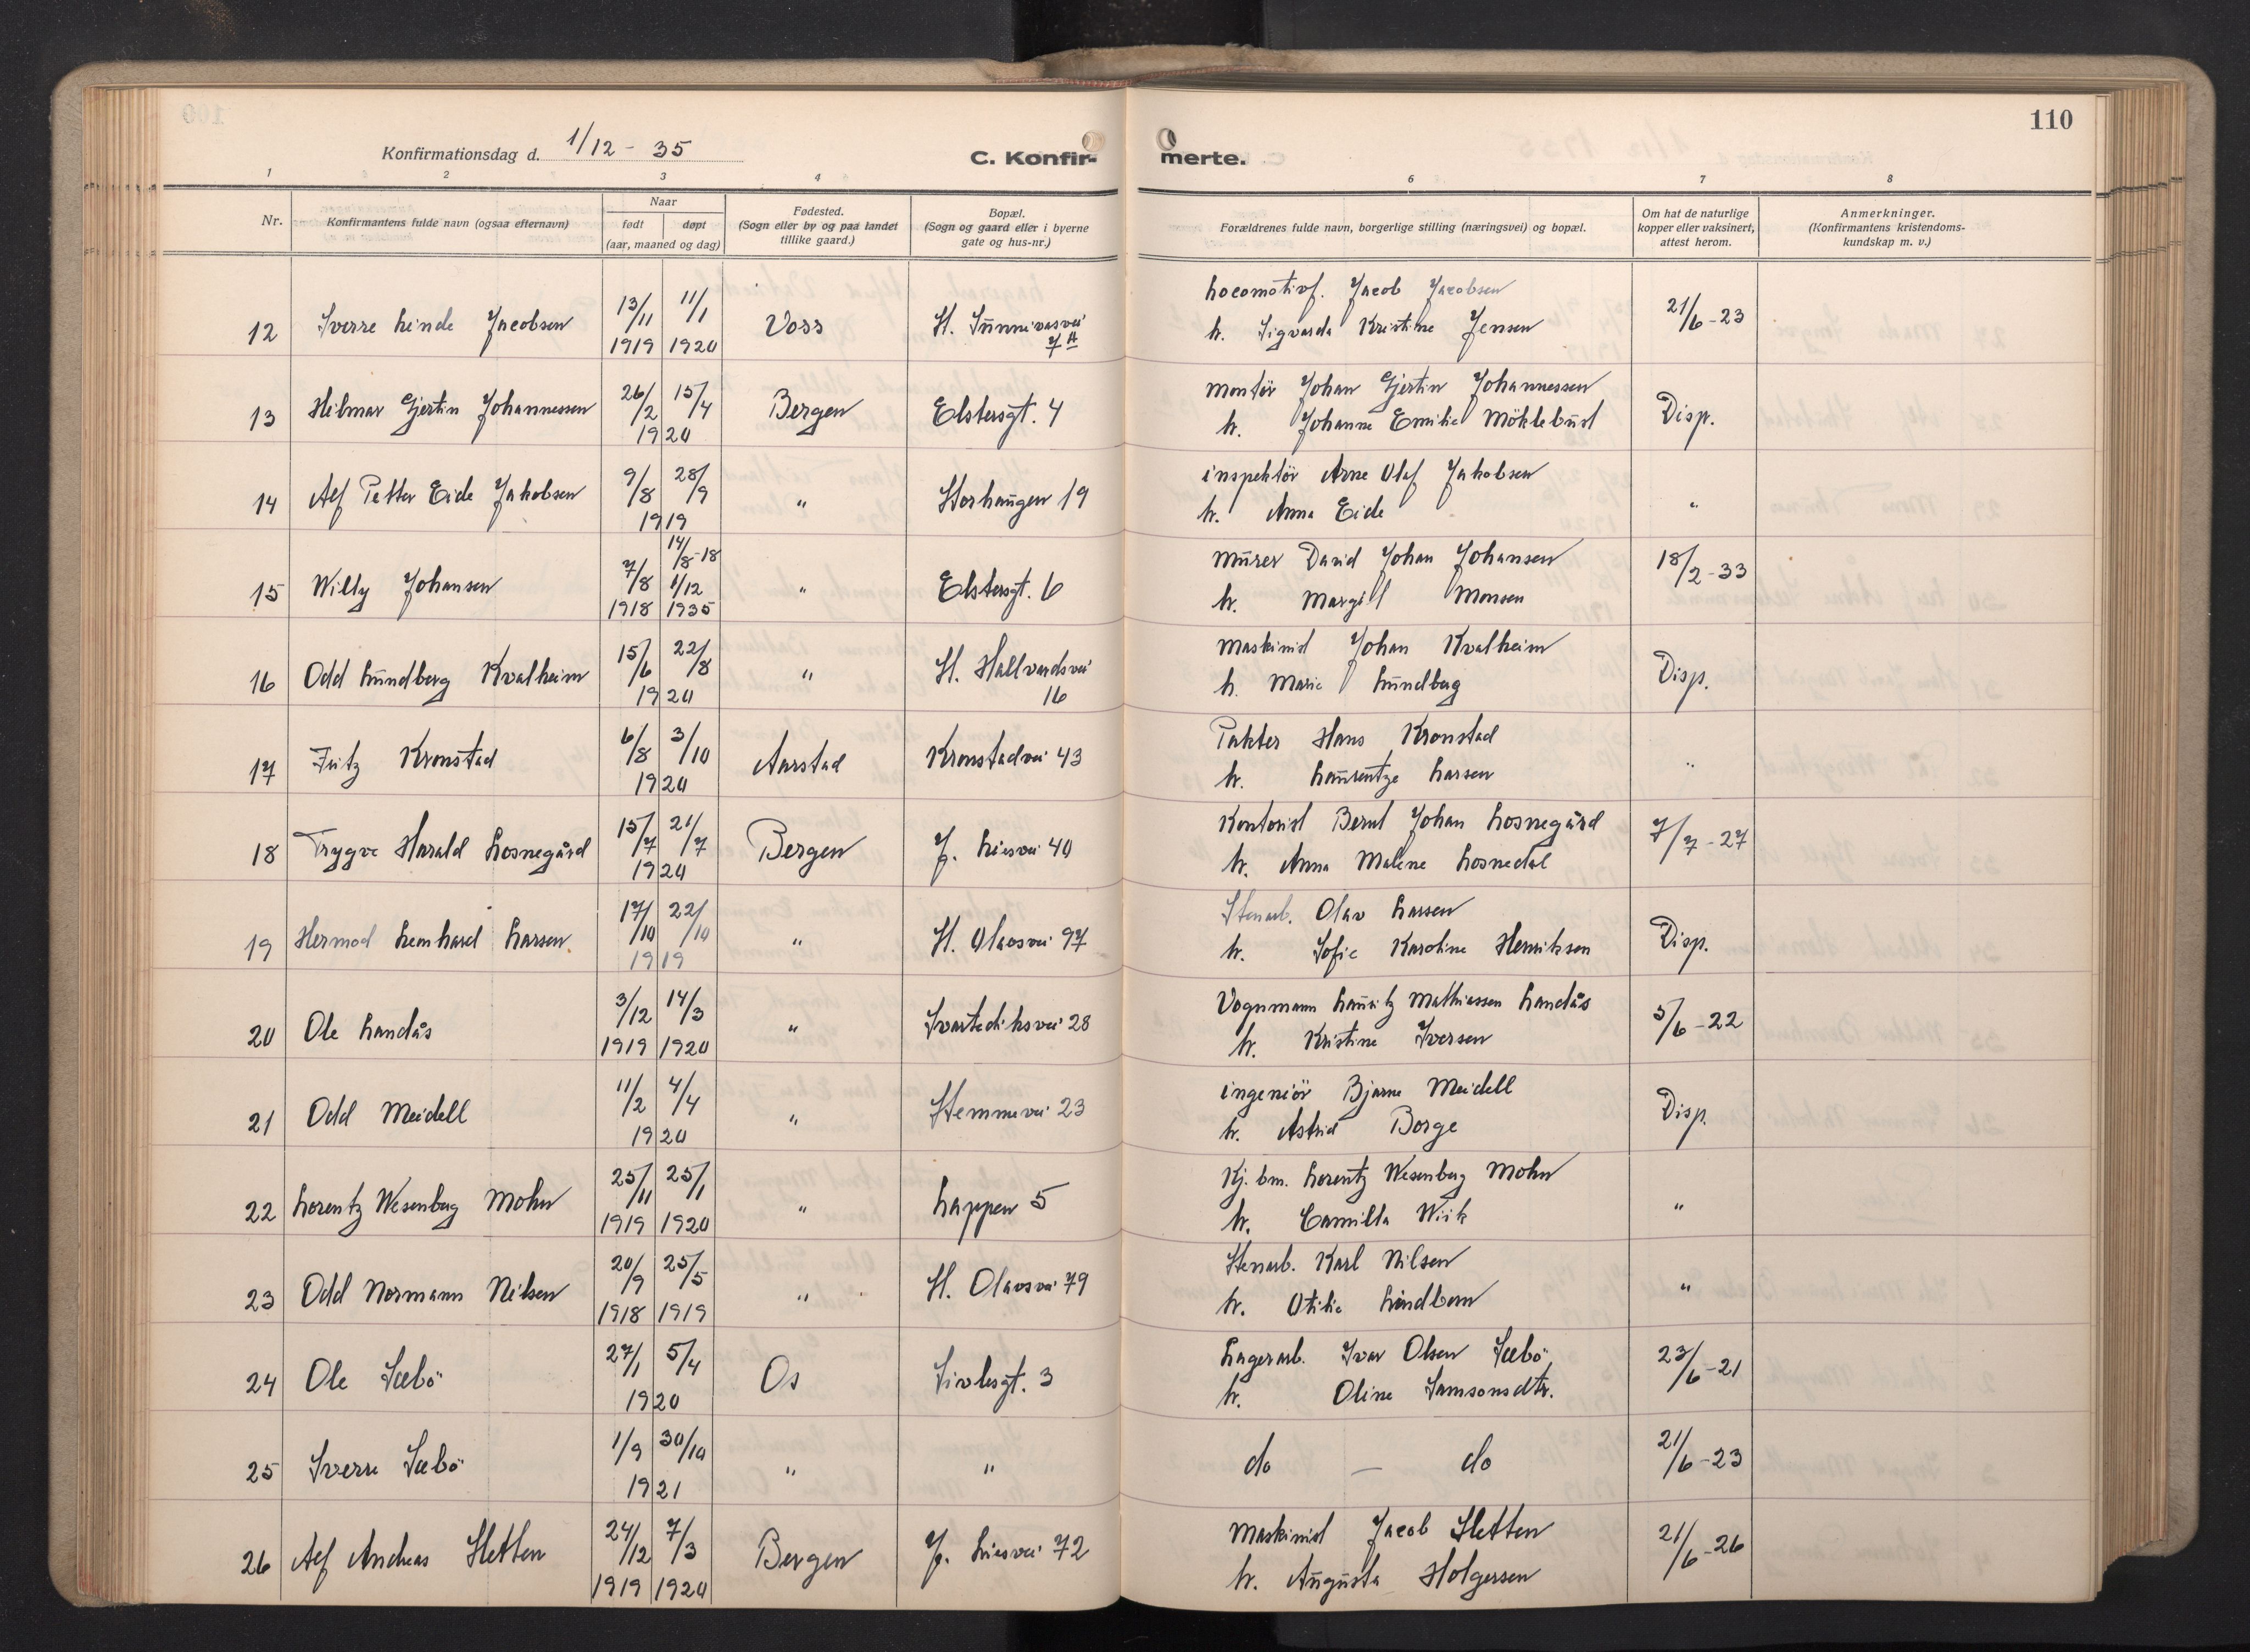 110
Konfirmationsdag d. 1/12 - 35
C. Konfir-
merte.
1 2 3 4 6 7 8
Nr.
Konfirmantens fulde navn (ogsaa efternavn)
Naar
født døpt
(aar, maaned og dag)
Fødested.
(Sogn eller by og paa landet
tillike gaard.)
Bopæl.
(Sogn og gaard eller i byerne
gate og hus-nr.)
Forældrenes fulde navn, borgerlige stilling (næringsvei) og bopæl.
Om hat de naturlige
kopper eller vaksinert,
attest herom.
Anmerkninger.
(Konfirmantens kristendoms-
kundskap m. v.)
Locomotivf. Jacob Jacobsen
12 Sverre Linde Jacobsen 13/11 1919 11/1 1920 Voss St. Sunnivasvei 7A 21/6-23
h. Sigvarda Kristine Jensen
Montör Johan Gjertin Johannessen
13 Hilmar Gjertin Johannessen 26/2 15/4 1920 Bergen Elstersgt. 4 Disp.
h. Johanne Emilie Möklebust
inspektör Arne Olaf Jakobsen
14 Alf Petter Eide Jakobsen 9/8 28/9 1919 " Storhaugen 19 "
h. Anna Eide
Murer David Johan Johansen
15 Willy Johansen 7/8 1918 14/8-18 1/12 1935 " Elstersgt. 6 18/2-33
h. Margit Monsen
Maskinist Johan Kvalheim
16 Odd Lundberg Kvalheim 15/6 22/8 1920 " St. Hallvardsvei 16 Disp.
h. Marie Lundberg
Pakter Hans Kronstad
17 Fritz Kronstad 6/8 3/10 1920 Aarstad Kronstadvei 43 "
h. Laurentze Larsen
Kontorist Bernt Johan Losnegård
18 Trygve Harald Losnegård 15/7 21/7 1920 Bergen J. Liesvei 40 7/7-27
h. Anna Malene Losnedal
Stenarb. Olav Larsen
19 Hermod Leonhard Larsen 17/10 22/10 1919 " St. Olavsvei 97 Disp.
h. Sofie Karoline Henriksen
Vognmann Lauritz Mathiassen Landås
20 Ole Landås 3/12 1919 14/3 1920 " Svartediksvei 28 5/6-22
h. Kristine Iversen
ingeniör Bjarne Meidell
21 Odd Meidell 11/2 4/4 1920 " Stemmevei 23 Disp.
h. Astrid Borge
Kj. bm. Lorentz Wesenberg Mohn
22 Lorentz Wesenberg Mohn 25/11 1919 25/1 1920 " Lappen 5 "
h. Camilla Wiik
Stenarb. Karl Nilsen
23 Odd Normann Nilsen 20/9 1918 25/5 1919 " St. Olavsvei 79 "
h. Otilie Lindbom
Lagerarb. Ivar Olsen Sæbö
24 Ole Sæbö 27/1 5/4 1920 Os Sivlesgt. 3 23/6-21
h. Oline Samsonsdtr.
25 Sverre Sæbö 1/9 30/10 1921 " " do — do 21/6-23
Maskinist Jacob Sletten
26 Alf Andreas Sletten 24/12 1919 7/3 1920 Bergen J. Liesvei 72 21/6-26
h. Augusta Holgersen